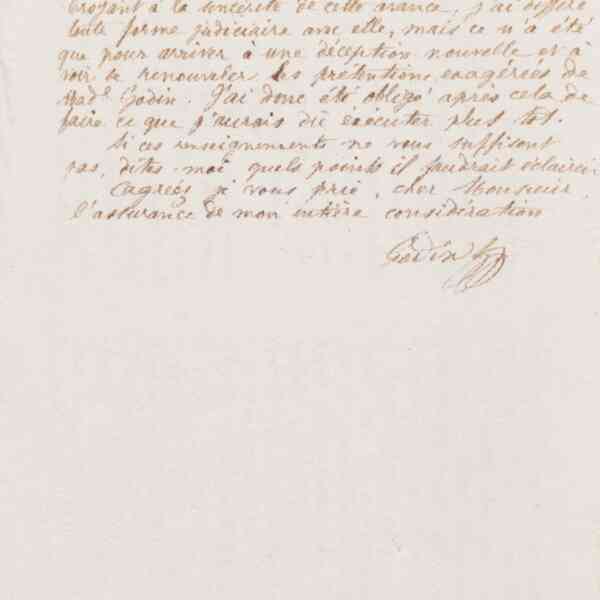 Croyant à la sincérité de cette avance, j'ai différé
toute forme judiciaire avec elle, mais ce n'a été
que pour arriver à une déception nouvelle et à
voir se renouveler les prétentions exagérées de
Mad. Godin. J'ai donc été obligé après cela de
faire ce que j'aurais dû exécuter plus tôt.
Si ces renseignements ne vous suffisent
pas, dites-moi quels points il faudrait éclaircir
Agréez je vous prie, cher Monsieur,
l'assurance de mon entière considération
Godin